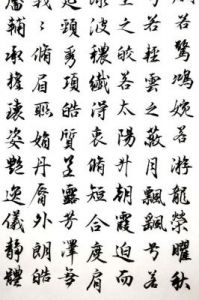 若驚鴻婉若游龍榮曜秋
兮若輕雲之蔽月飄飄兮若
之皎若太陽升朝霞迫而
波穠纖得衷脩短合度肩
頸秀項皓質呈露芳澤無
峩々脩眉聯娟丹脣外朗皓
輔承權瓌姿艷逸儀靜體